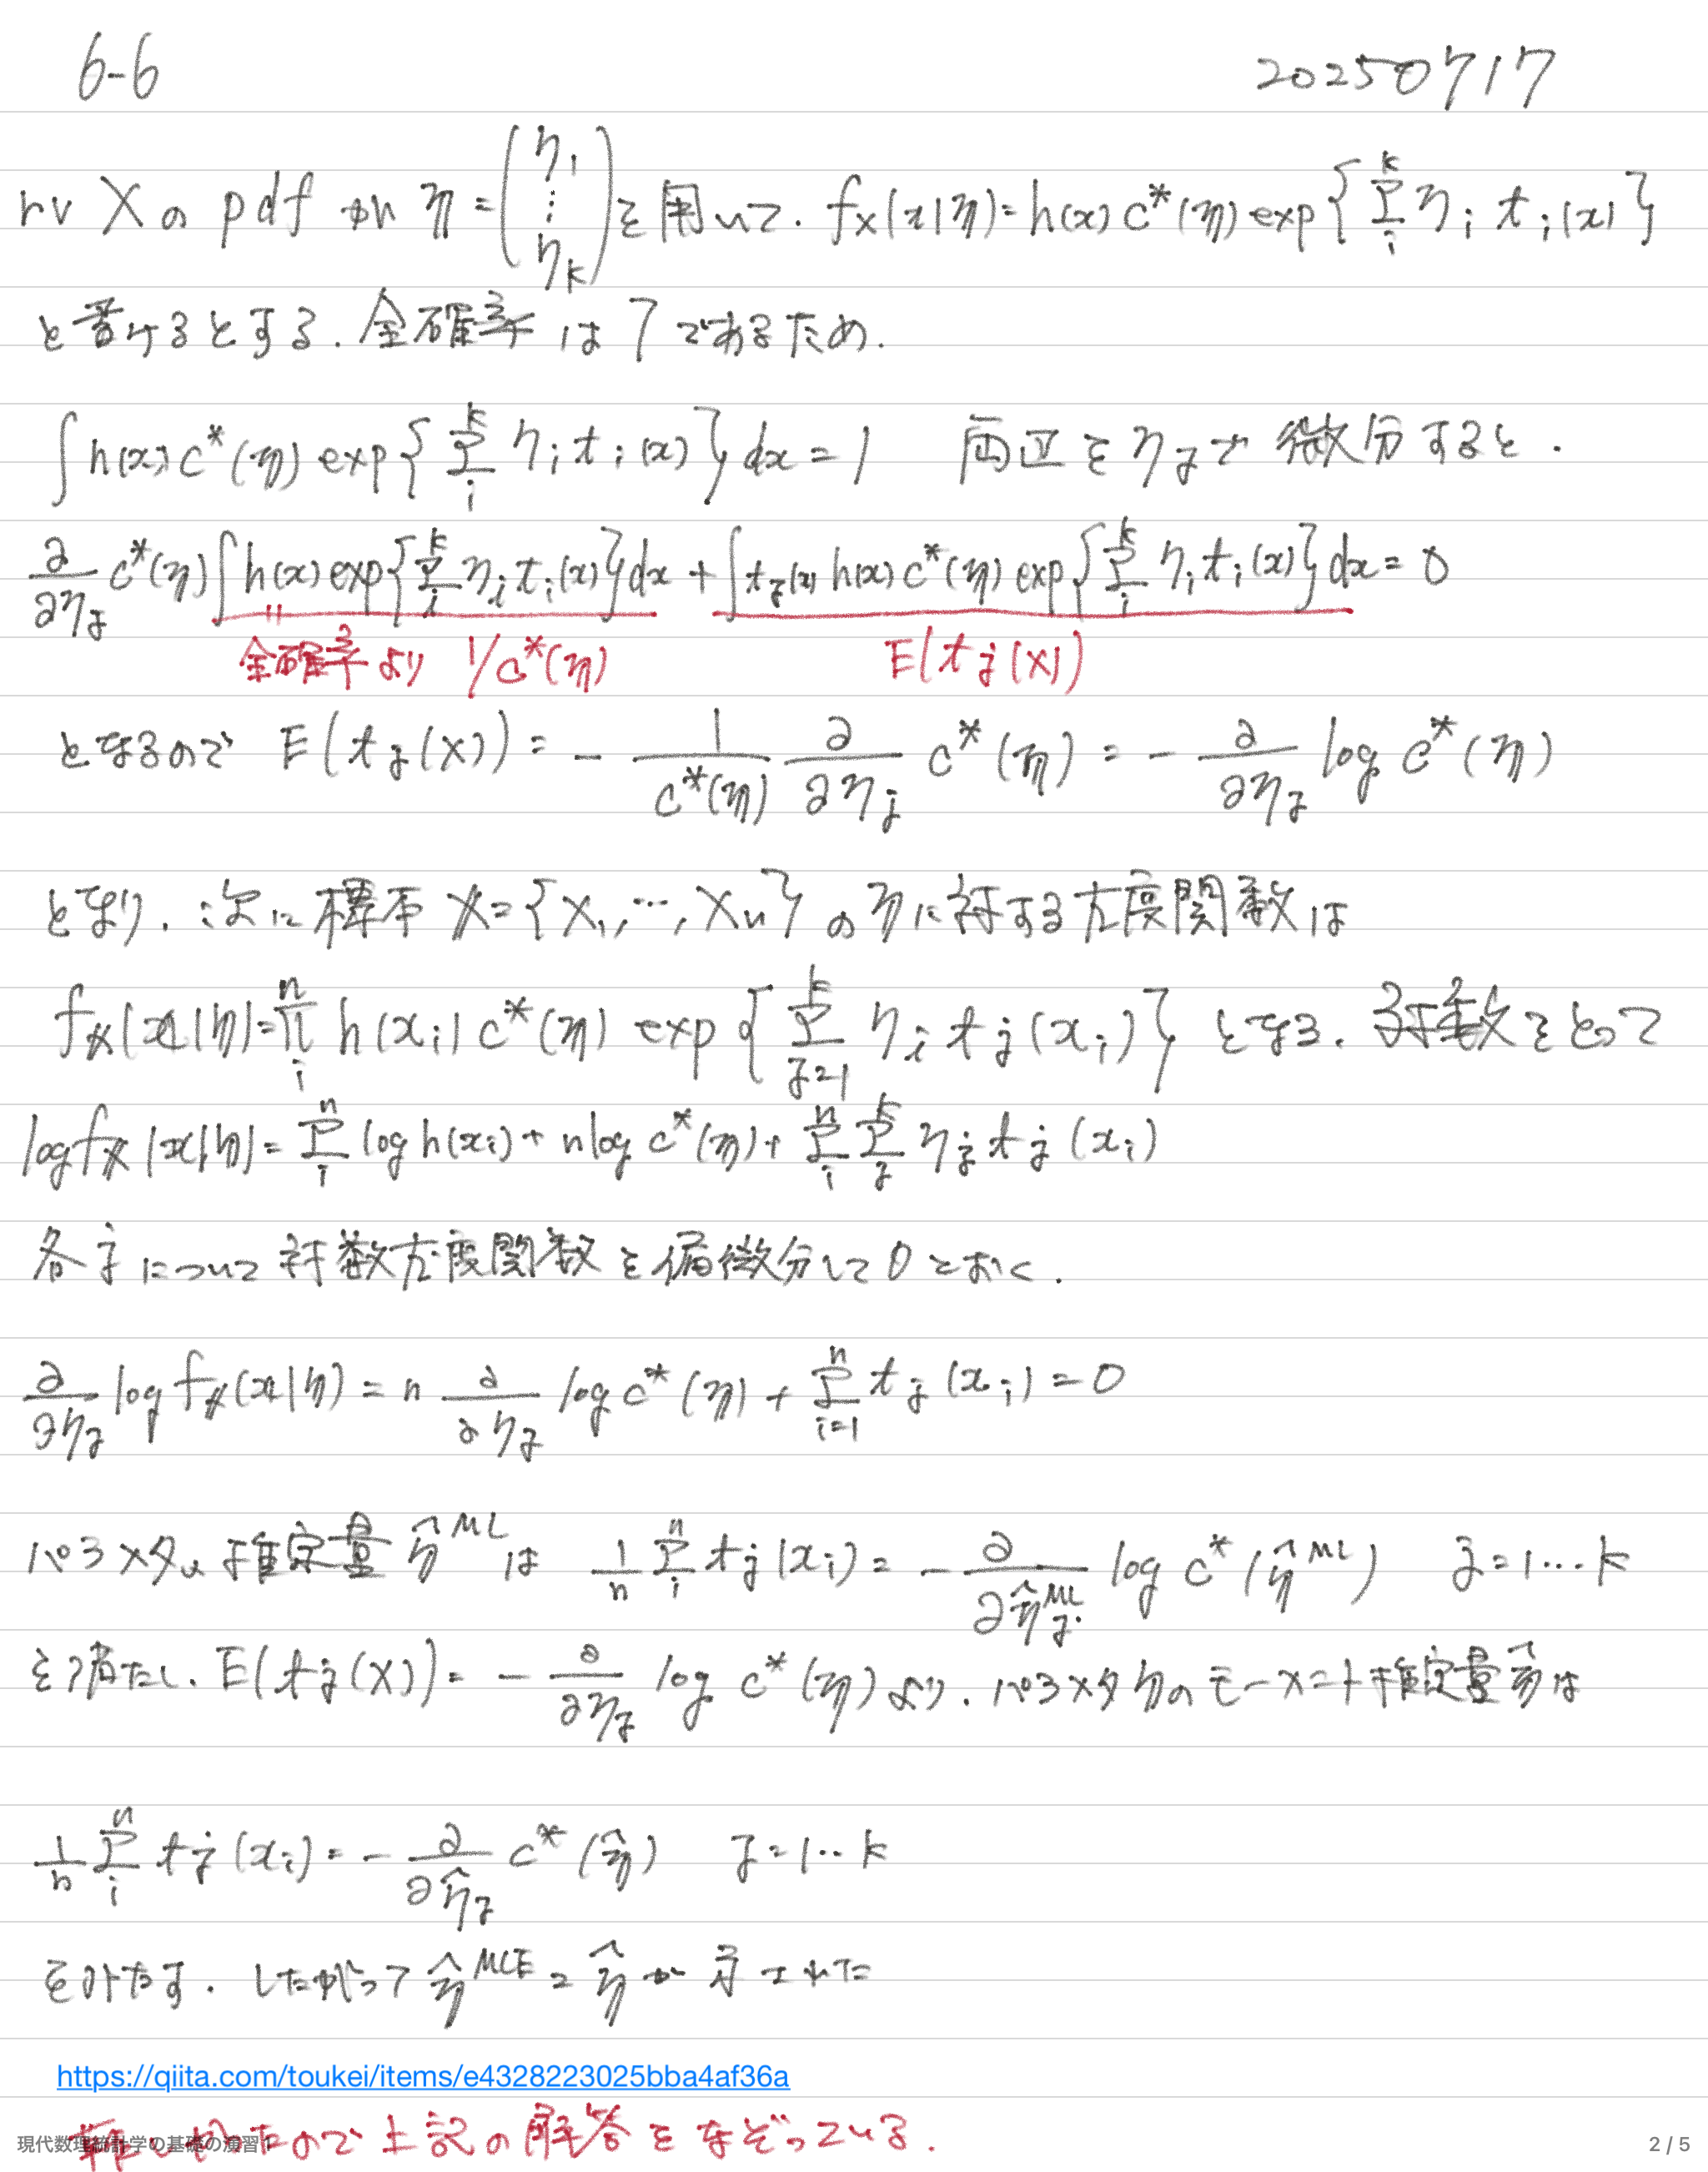 6-6 20250717
rv X の pdf が η = (η₁ ⋮ ηₖ) を用いて. f_X(x|η) = h(x) c*(η) exp{Σ_i^k η_i t_i(x)}
と書けるとする. 全確率は1であるため.
∫h(x) c*(η) exp{Σ_i^k η_i t_i(x)}dx = 1 両辺を η_j で 微分すると.
∂/∂η_j c*(η) ∫h(x) exp{Σ_i^k η_i t_i(x)}dx + ∫t_j(x) h(x) c*(η) exp{Σ_i^k η_i t_i(x)}dx = 0
全確率より 1/c*(η) E(t_j(X))
となるので E(t_j(X)) = - 1/c*(η) ∂/∂η_j c*(η) = - ∂/∂η_j log c*(η)
となり. 次に 標本 X = {X₁, …, Xn} の η に対する尤度関数は
f_X(x|η) = Π_i^n h(x_i) c*(η) exp{Σ_{j=1}^k η_i t_j(x_i)} となる. 対数をとって
log f_X(x|η) = Σ_i^n log h(x_i) + n log c*(η) + Σ_i^n Σ_j^k η_j t_j(x_i)
各 j について 対数尤度関数を偏微分して 0 とおく.
∂/∂η_j log f_X(x|η) = n ∂/∂η_j log c*(η) + Σ_{i=1}^n t_j(x_i) = 0
パラメタの推定量 η̂^ML は 1/n Σ_i^n t_j(x_i) = - ∂/∂η̂_j^ML log c*(η̂^ML) j = 1 … k
を満たし. E(t_j(X)) = - ∂/∂η_j log c*(η) より. パラメタ η のモーメント推定量 η̂ は
1/n Σ_i^n t_j(x_i) = - ∂/∂η̂_j c*(η̂) j = 1 ‥ k
をみたす. したがって η̂^MLE = η̂ が 示された
https://qiita.com/toukei/items/e4328223025bba4af36a
難しかったので上記の解答をなぞっている.
現代数理統計学の基礎の演習 1 2 / 5